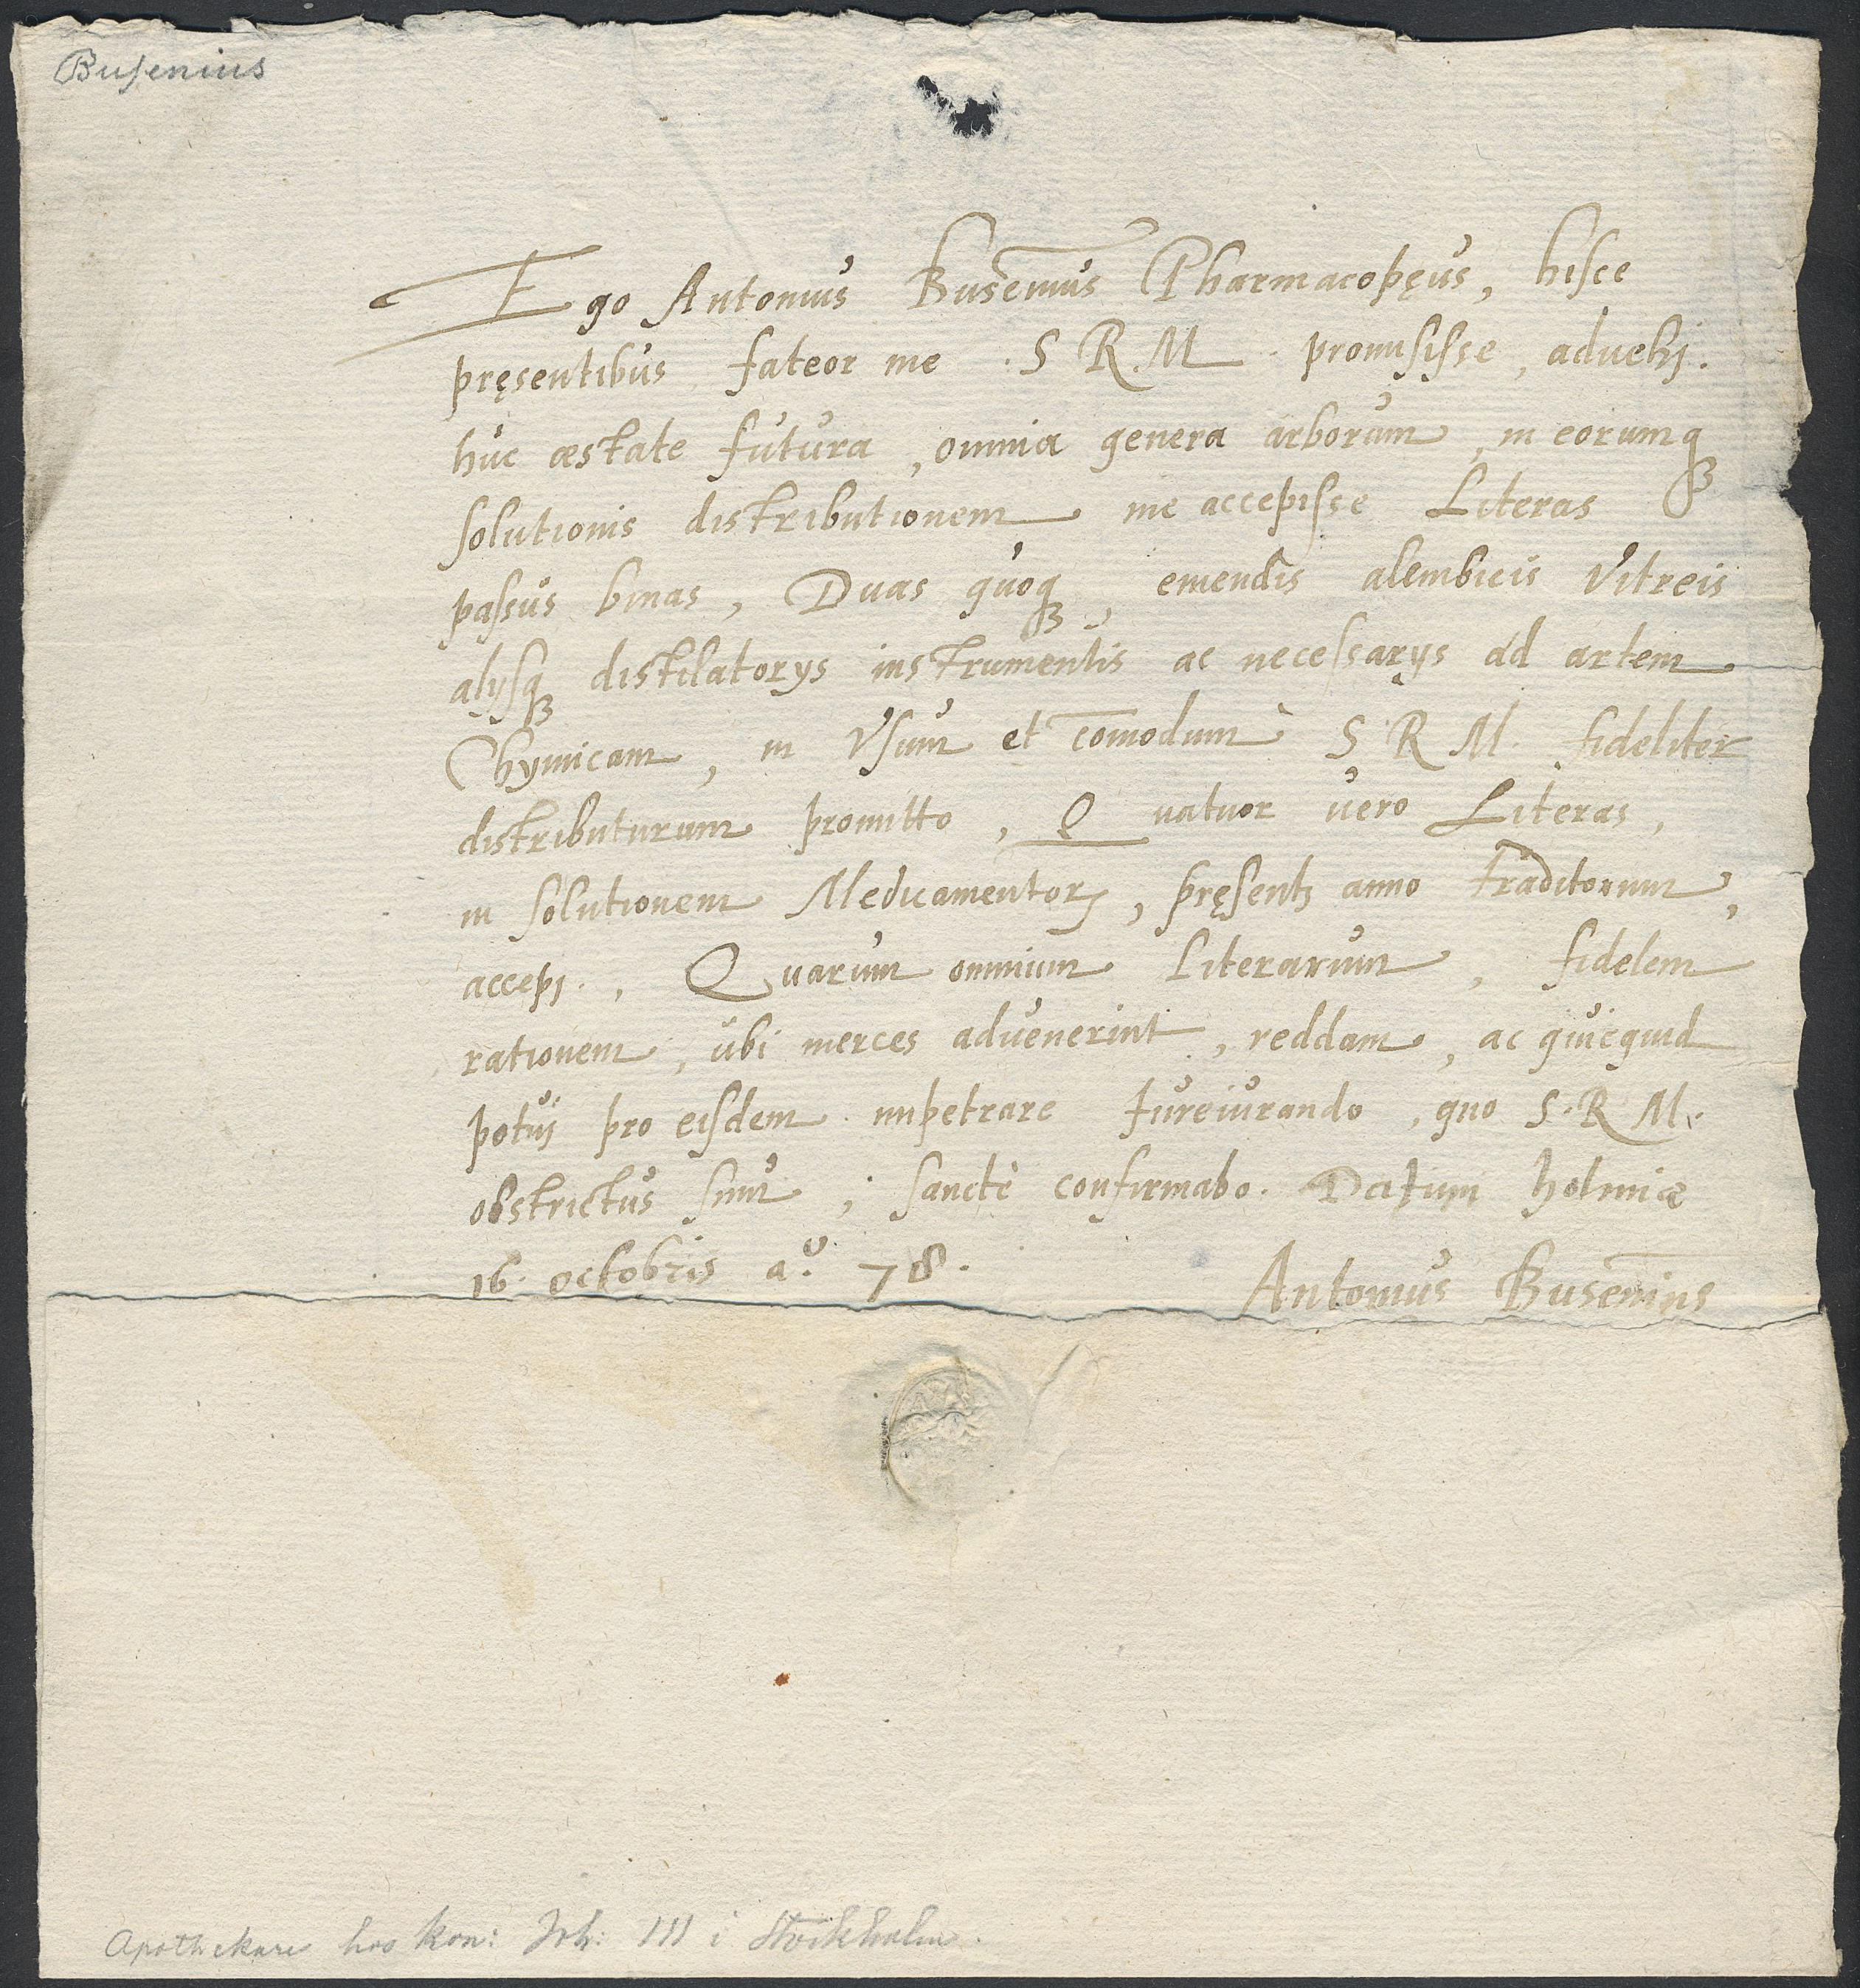 Busenius
Ego Antonius Busenius Pharmacopęus, hisce
pręsentibus fateor me . S R M . promisisse, aduehj.
huc æstate futura, omnia genera arborum, in eorumq₃
solutionis distributionem me accepisse Literas
passus binas, Duas quoq₃, emendis alembicis Vitreis
alijsq₃ distilatorijs instrumentis ac necessarijs ad artem
Chymicam, in Vsum et com̄odum S R M. fideliter
distributurum promitto, Quatuor uero Literas,
in solutionem Medicamentorꝝ, pręsentj anno traditorum,
accepj., Quarum omnium Literarum, fidelem
rationem, ubi merces aduenerint, reddam, ac quicquid
potuj pro eisdem impetrare Jureiurando, quo S. R M.
obstrictus sum; sanctè confirmabo. Datum holmiæ
16. octobris a.º 78.
Antonius Busenius
Apothekare hos kon: Joh: III i Stockholm.